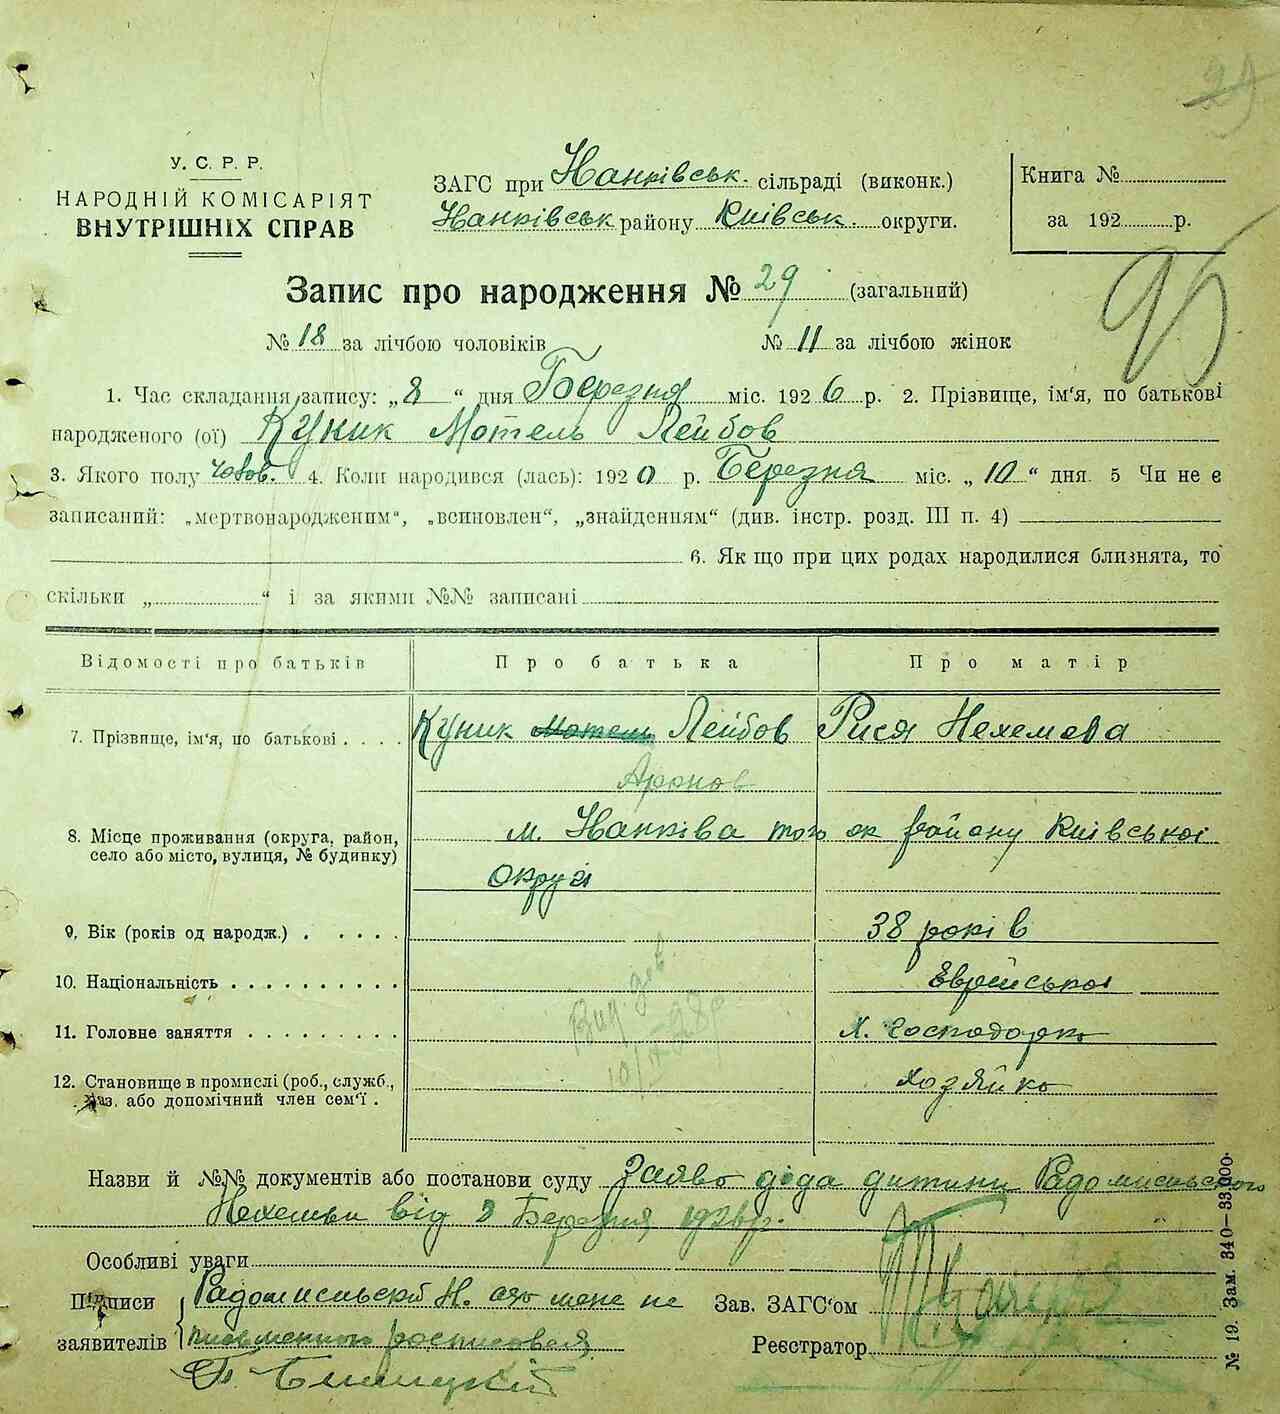 29
У. С. Р. Р.
НАРОДНІЙ КОМІСАРІЯТ
ВНУТРІШНІХ СПРАВ
ЗАГС при Іванківськ. сільраді (виконк.)
Іванківськ району Київськ. округи.
Книга №
за 192 р.
95
Запис про народження № 29 (загальний)
№ 18 за лічбою чоловіків № 11 за лічбою жінок
1. Час складання запису: „8“ дня Березня міс. 1926 р. 2. Прізвище, ім‘я, по батькові
народженого (ої) Куник Мотель Лейбов
3. Якого полу чолов. 4. Коли народився (лась): 1920 р. Березня міс. „10“ дня. 5 Чи не є
записаний: „мертвонародженим“, „всиновлен“, „знайденням“ (див. інстр. розд. III п. 4)
6. Як що при цих родах народилися близнята, то
скільки „ “ і за якими №№ записані
Відомості про батьків Про батька Про матір
7. Прізвище, ім‘я, по батькові . . . . Куник Мотель Лейбов Рися Нехемова
Аронов
8. Місце проживання (округа, район,
село або місто, вулиця, № будинку)
м. Іванків того ж району Київської
округи
9. Вік (років од народж.) . . . . . 38 років
10. Національність . . . . . . . . . . Єврейської
11. Головне заняття . . . . . . . . . Х. Господарка
12. Становище в промислі (роб., служб.,
хаз. або допомічний член сем‘ї .
Хозяйка
Вид дов.
Назви й №№ документів або постанови суду Заява діда дитини Радомисльського
Нехемьи від 8 Березня 1926 р.
Особливі уваги
Підписи
заявителів
Радомисльскій Н. а за мене не
письменного росписовся
Зав. ЗАГС‘ом
Реєстратор
№ 19. Зам. 340—33.000.